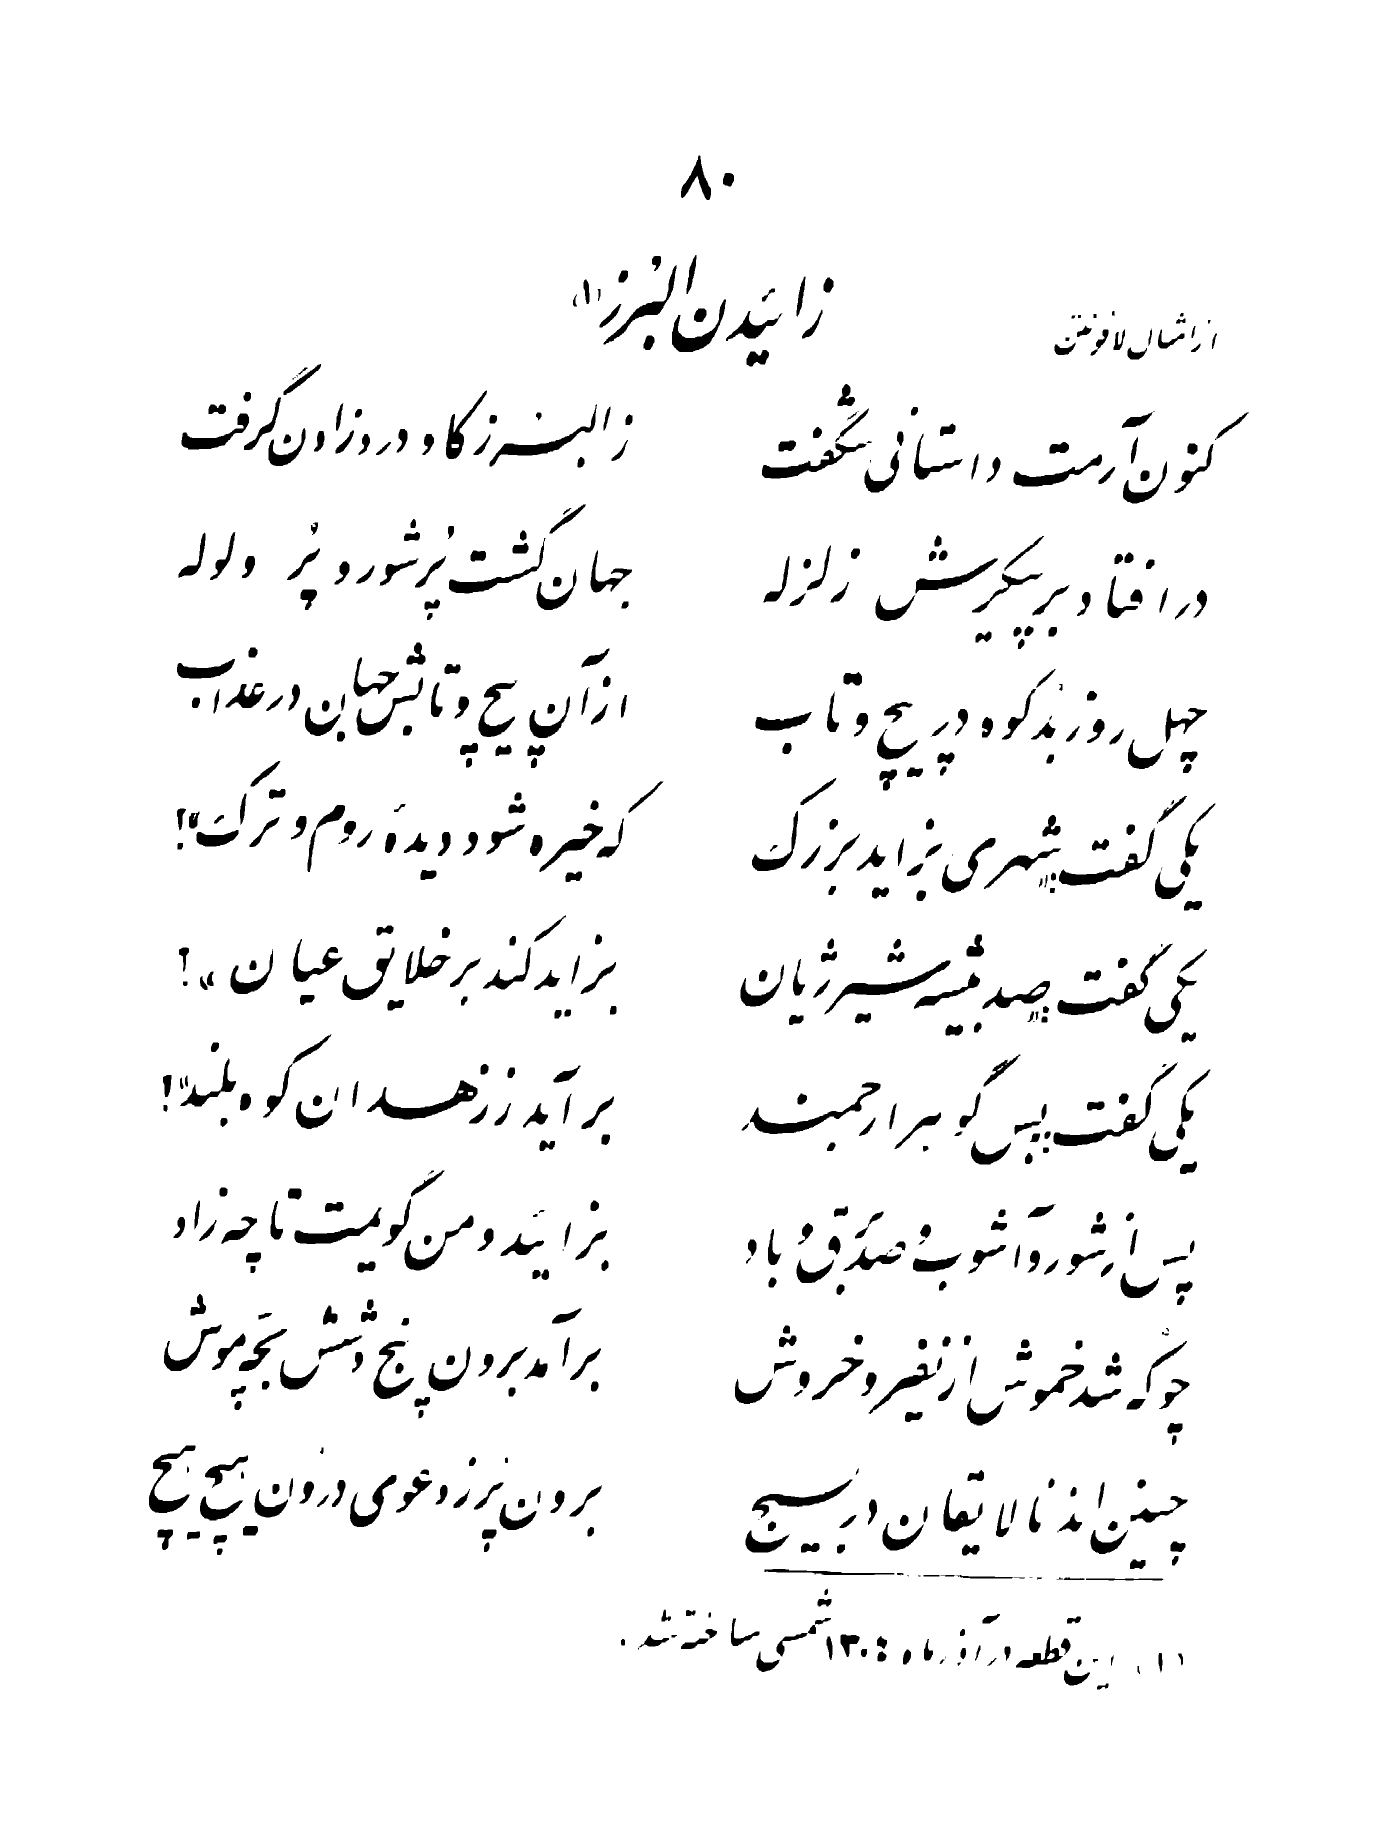 ۸۰
زائیدن البُرز (۱)
از امثال لافونتن
کنون آرمت داستانی شگفت
ز البرز کاو درد زادن گرفت
در افتاد بر پیکرش زلزله
جهان گشت پُر شور و پُر ولوله
چهل روز بُد کوه در پیچ و تاب
از آن پیچ و تابش جهان در عذاب
یکی گفت: "شهری بزاید بزرگ
که خیره شود دیدهٔ روم و ترک"!
یکی گفت: "صد بیشه شیر ژیان
بزاید کند بر خلایق عیان"!
یکی گفت: پس گوهر ارجمند
بر آید ز زهدان کوه بلند"!
پس از شور و آشوب و صَدّق و باد
بزائید و من گویمت تا چه زاد
چو کُه شد خموش از نفیر و خروش
بر آمد برون پنج و شش بچّه موش
چنین اند نالایقان در بسیج
برون پُر ز دعوی درون هیچ هیچ
(۱) این قطعه در آذر ماه ۱۳۰٤ شمسی ساخته شد.